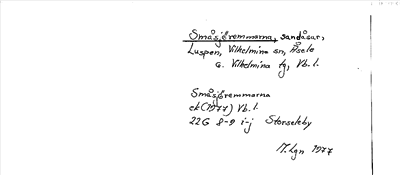 Småsjöremmarna, sandåsar,
Luspen, Vilhelmina sn, Åsele
o. Vilhelmina tg, Vb. l.
Småsjöremmarna
ek (1977) Vb. l.
22G 8-9 i-j Storseleby
M. Lgn 1977